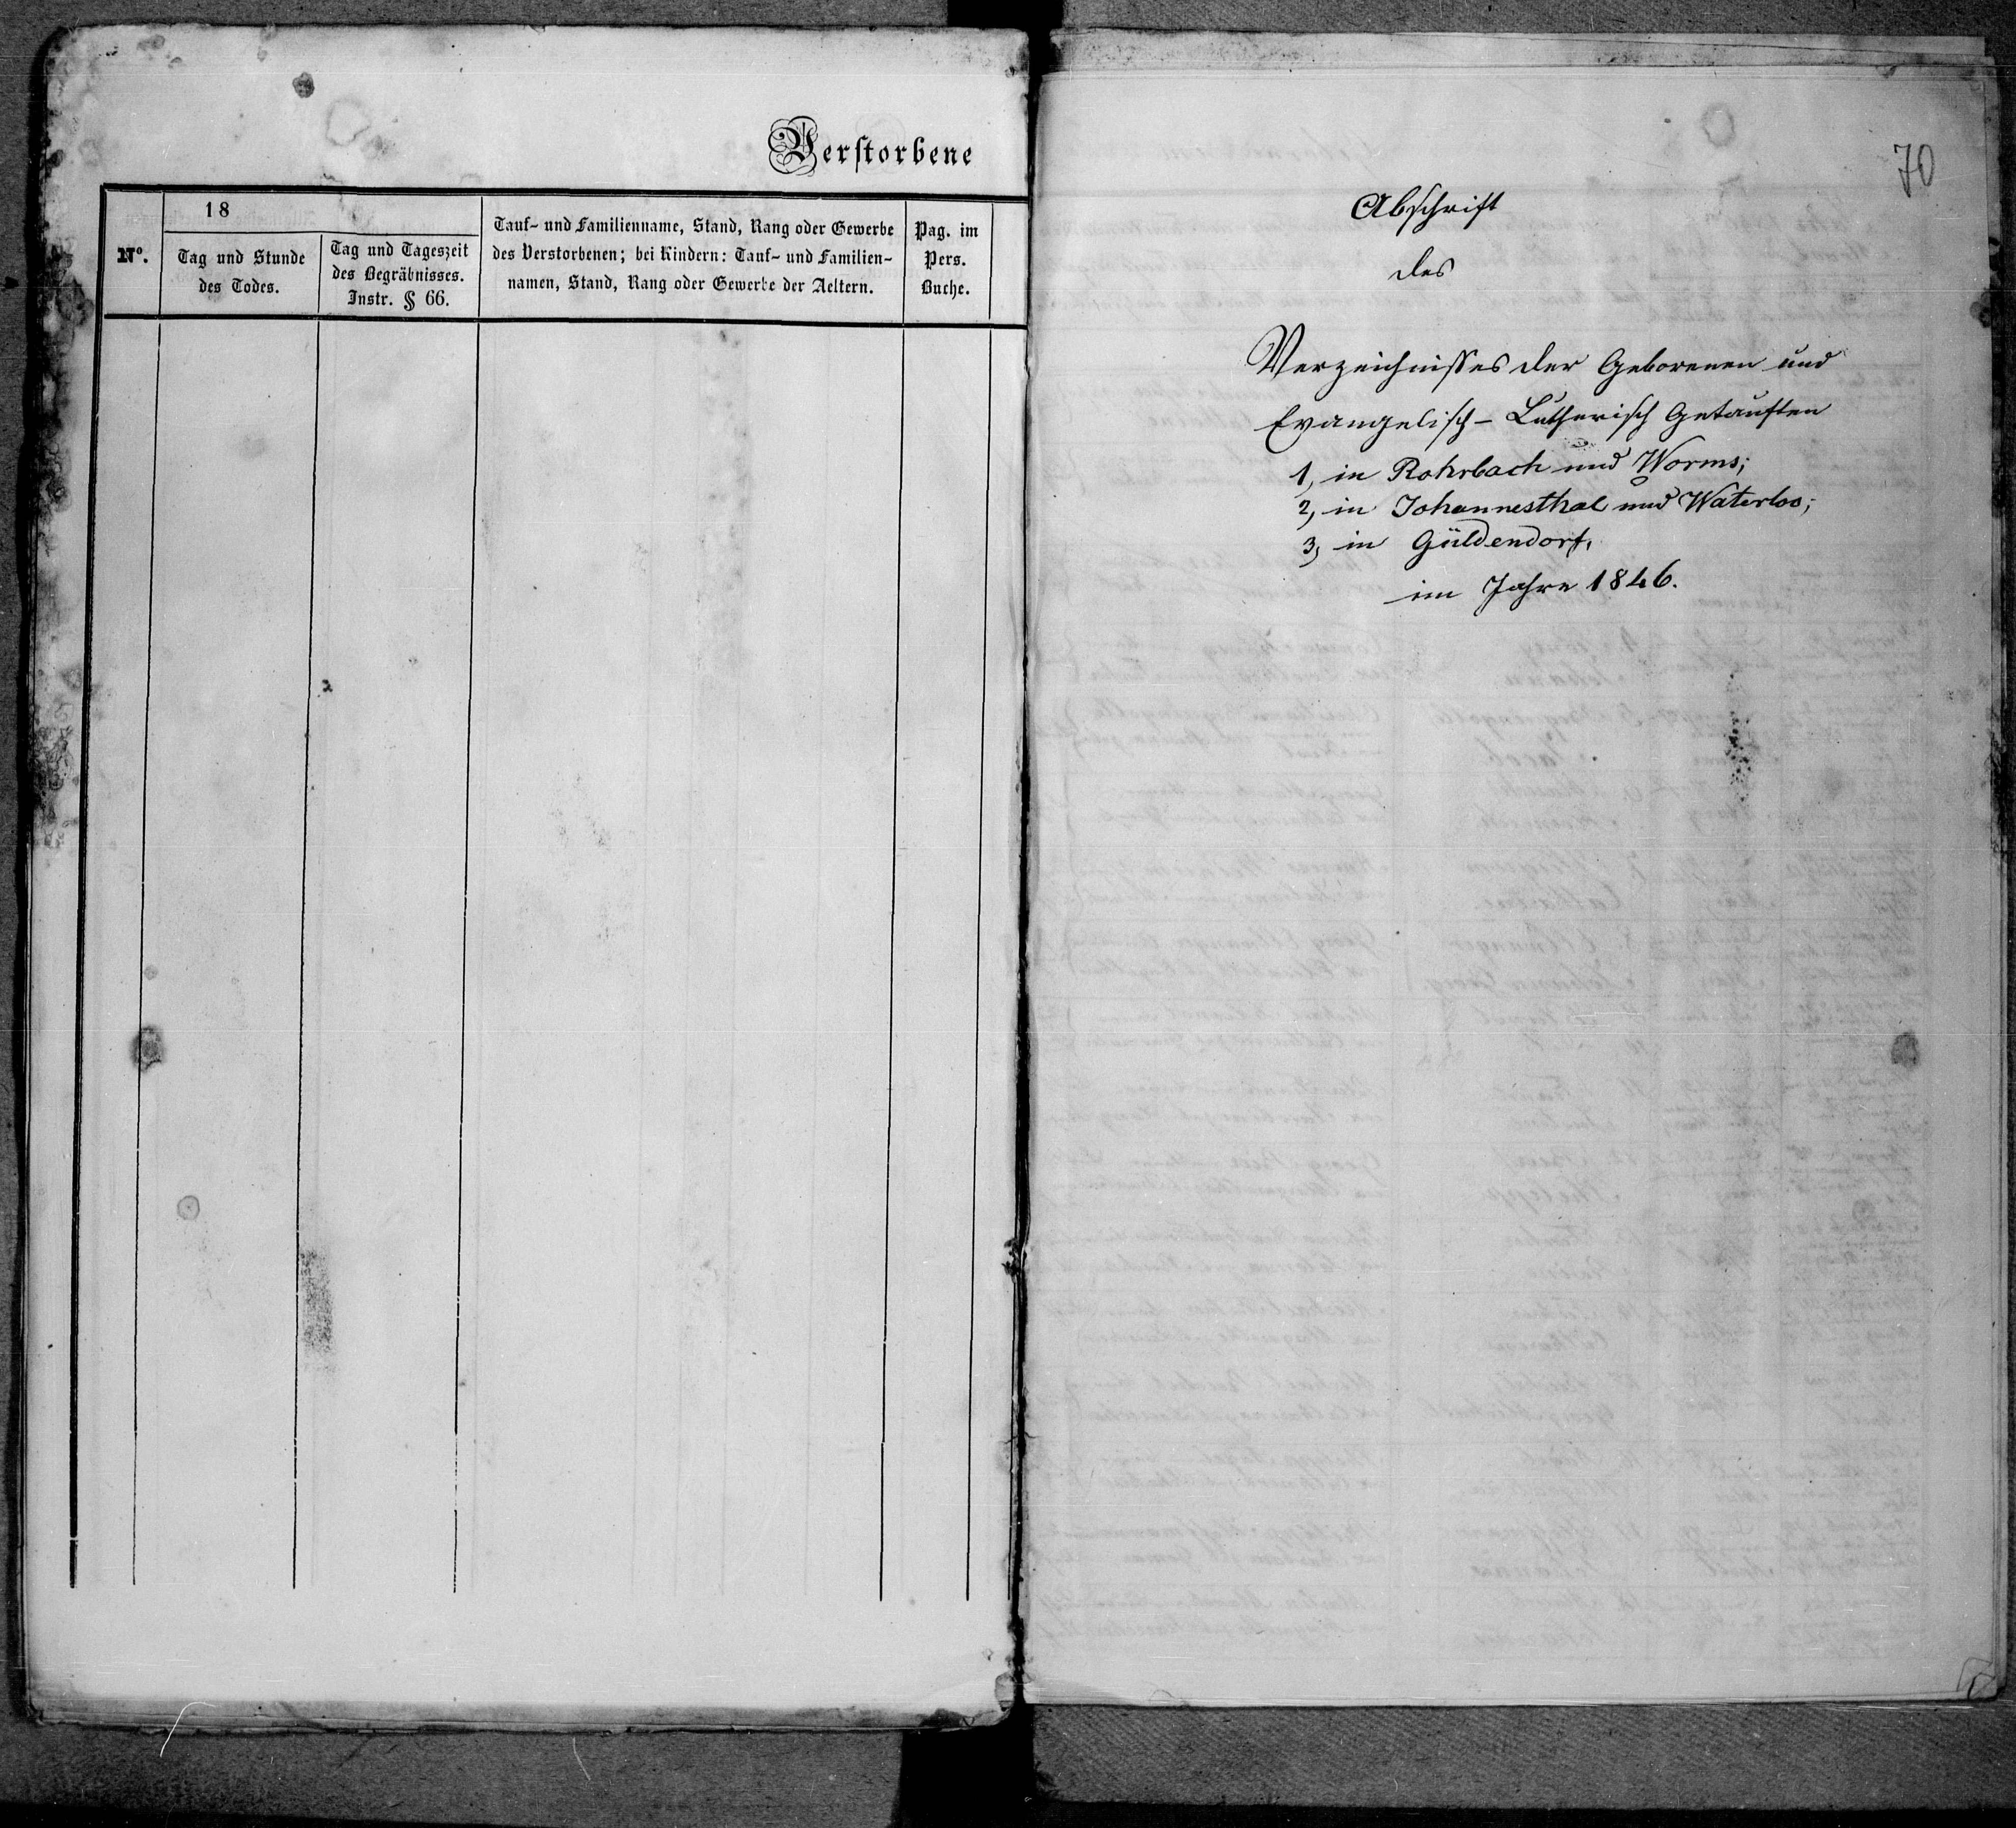 Verstorbene
Nº.
18
Tag und Stunde
des Todes.
Tag und Tageszeit
des Begräbnisses.
Instr. § 66.
Tauf- und Familienname, Stand, Rang oder Gewerbe
des Verstorbenen; bei Kindern: Tauf- und Familien-
namen, Stand, Rang oder Gewerbe der Aeltern.
Pag. im
Pers.
Buche.
70
Abschrift
des
Verzeichnisses der Geborenen und
Evangelisch-Lutherisch Getauften
1, in Rohrbach und Worms;
2, in Johannesthal und Waterloo;
3, in Güldendorf,
im Jahre 1846.